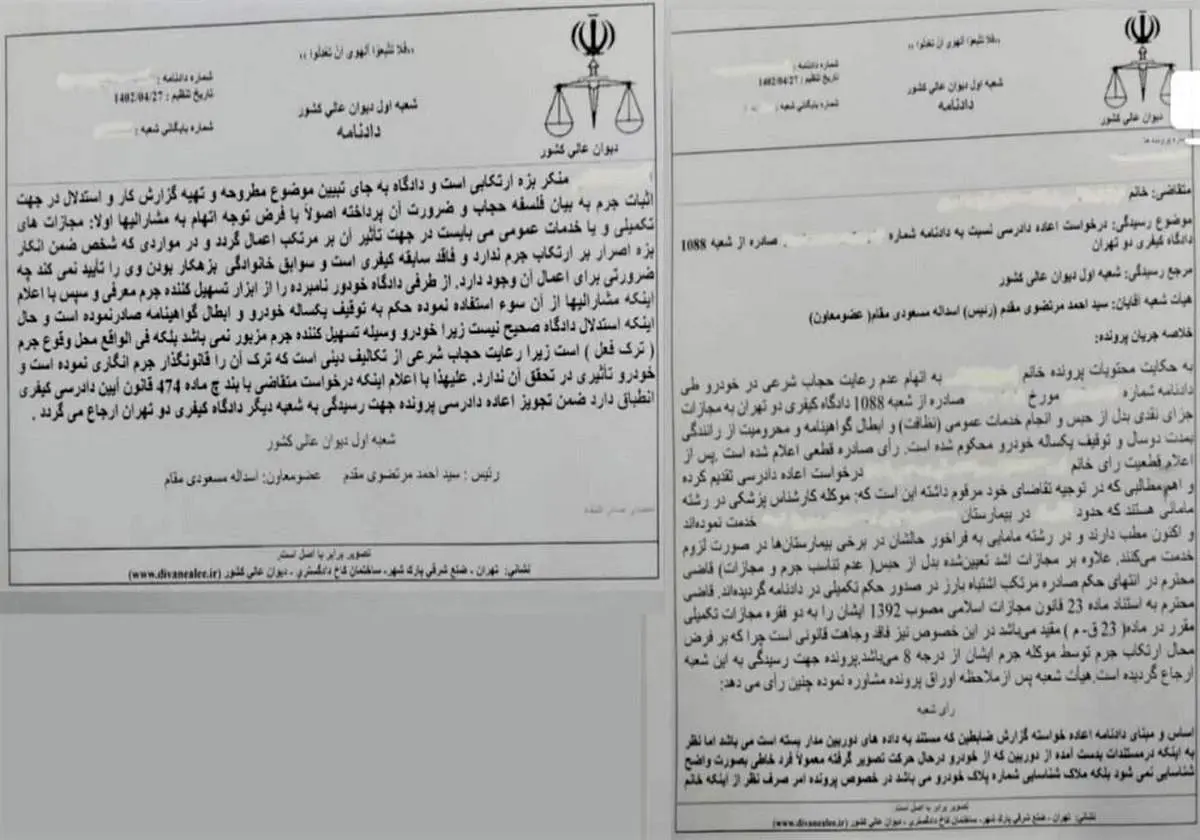 ,,فلا تتبعوا الهوی ان تعدلوا ,,
شماره دادنامه :
تاریخ تنظیم : 1402/04/27
شماره بایگانی شعبه :
شعبه اول دیوان عالی کشور
دادنامه
دیوان عالی کشور
شماره پرونده ها
متقاضی: خانم
موضوع رسیدگی: درخواست اعاده دادرسی نسبت به دادنامه شماره صادره از شعبه 1088
دادگاه کیفری دو تهران
مرجع رسیدگی: شعبه اول دیوان عالی کشور
هیأت شعبه آقایان: سید احمد مرتضوی مقدم (رئیس) اسداله مسعودی مقام( عضومعاون)
خلاصه جریان پرونده:
به حکایت محتویات پرونده خانم به اتهام عدم رعایت حجاب شرعی در خودرو طی
دادنامه شماره مورخ صادره از شعبه 1088 دادگاه کیفری دو تهران به مجازات
جزای نقدی بدل از حبس و انجام خدمات عمومی (نظافت) و ابطال گواهینامه و محرومیت از رانندگی
بمدت دوسال و توقیف یکساله خودرو محکوم شده است. رأی صادره قطعی اعلام شده است .پس از
اعلام قطعیت رای خانم درخواست اعاده دادرسی تقدیم کرده
و اهم مطالبی که در توجیه تقاضای خود مرقوم داشته این است که: موکله کارشناس پزشکی در رشته
مامائی هستند که حدود در بیمارستان خدمت نموده‌اند
و اکنون مطب دارند و در رشته مامایی به فراخور حالشان در برخی بیمارستان‌ها در صورت لزوم
خدمت می‌کنند. علاوه بر مجازات اشد تعیین‌شده بدل از حبس( عدم تناسب جرم و مجازات) قاضی
محترم در انتهای حکم صادره مرتکب اشتباه بارز در صدور حکم تکمیلی در دادنامه گردیده‌اند. قاضی
محترم به استناد ماده 23 قانون مجازات اسلامی مصوب 1392 ایشان را به دو فقره مجازات تکمیلی
مقرر در ماده( 23 ق- م ) مقید می‌باشد در این خصوص نیز فاقد وجاهت قانونی است چرا که بر فرض
محال ارتکاب جرم توسط موکله جرم ایشان از درجه 8 می‌باشد.پرونده جهت رسیدگی به این شعبه
ارجاع گردیده است.هیأت شعبه پس ازملاحظه اوراق پرونده مشاوره نموده چنین رأی می دهد:
رأی شعبه
اساس و مبنای دادنامه اعاده خواسته گزارش ضابطین که مستند به داده های دوربین مدار بسته است می باشد اما نظر
به اینکه درمستندات بدست آمده از دوربین که از خودرو درحال حرکت تصویر گرفته معمولاً فرد خاطی بصورت واضح
شناسایی نمی شود بلکه ملاک شناسایی شماره پلاک خودرو می باشد در خصوص پرونده امر صرف نظر از اینکه خانم
تصویر برابر با اصل است.
نشانی: تهران - ضلع شرقی پارک شهر، ساختمان کاخ دادگستری - دیوان عالی کشور (www.divanealee.ir)
,,فلا تتبعوا الهوی ان تعدلوا ,,
شماره دادنامه :
تاریخ تنظیم : 1402/04/27
شماره بایگانی شعبه :
شعبه اول دیوان عالی کشور
دادنامه
دیوان عالی کشور
منکر بزه ارتکابی است و دادگاه به جای تبیین موضوع مطروحه و تهیه گزارش کار و استدلال در جهت
اثبات جرم به بیان فلسفه حجاب و ضرورت آن پرداخته اصولاً با فرض توجه اتهام به مشارالیها اولا: مجازات های
تکمیلی و یا خدمات عمومی می بایست در جهت تأثیر آن بر مرتکب اعمال گردد و در مواردی که شخص ضمن انکار
بزه اصرار بر ارتکاب جرم ندارد و فاقد سابقه کیفری است و سوابق خانوادگی بزهکار بودن وی را تأیید نمی کند چه
ضرورتی برای اعمال آن وجود دارد. از طرفی دادگاه خودور نامبرده را از ابزار تسهیل کننده جرم معرفی و سپس با اعلام
اینکه مشارالیها از آن سوء استفاده نموده حکم به توقیف یکساله خودرو و ابطال گواهینامه صادرنموده است و حال
اینکه استدلال دادگاه صحیح نیست زیرا خودرو وسیله تسهیل کننده جرم مزبور نمی باشد بلکه فی الواقع محل وقوع جرم
( ترک فعل ) است زیرا رعایت حجاب شرعی از تکالیف دینی است که ترک آن را قانونگذار جرم انگاری نموده است و
خودرو تأثیری در تحقق آن ندارد. علیهذا با اعلام اینکه درخواست متقاضی با بند چ ماده 474 قانون آیین دادرسی کیفری
انطباق دارد ضمن تجویز اعاده دادرسی پرونده جهت رسیدگی به شعبه دیگر دادگاه کیفری دو تهران ارجاع می گردد .
شعبه اول دیوان عالی کشور
رئیس : سید احمد مرتضوی مقدم عضومعاون: اسداله مسعودی مقام
تصویر برابر با اصل است.
نشانی: تهران - ضلع شرقی پارک شهر، ساختمان کاخ دادگستری - دیوان عالی کشور (www.divanealee.ir)